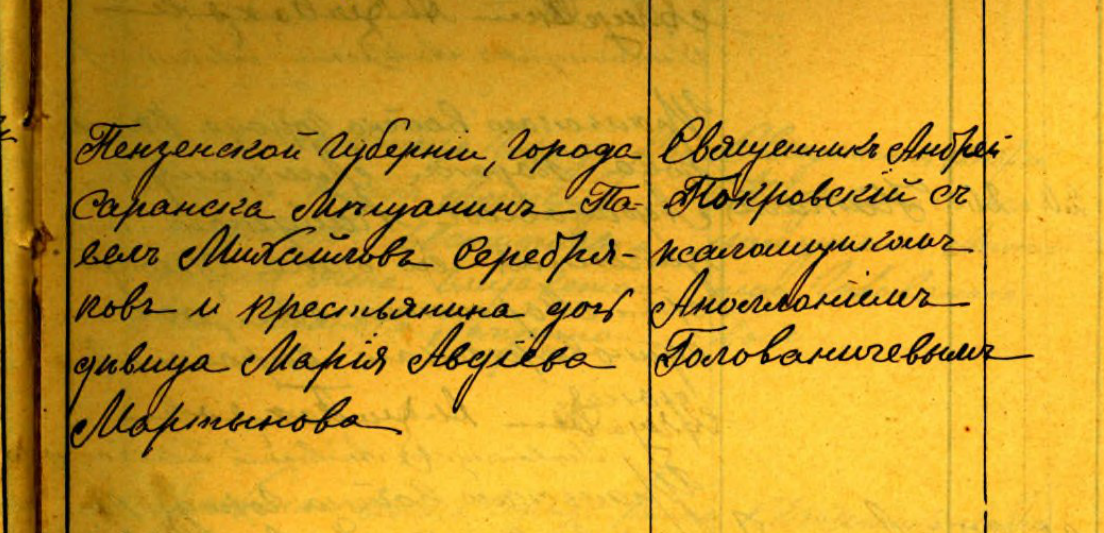 Пензенской губерніи, города
Саранска мѣщанинъ Па-
велъ Михайловъ Серебря-
ковъ и крестьянина дочь
дѣвица Марія Авдіева
Мартынова
Священникъ Андрей
Покровскій съ
псаломщикомъ
Аполлоніемъ